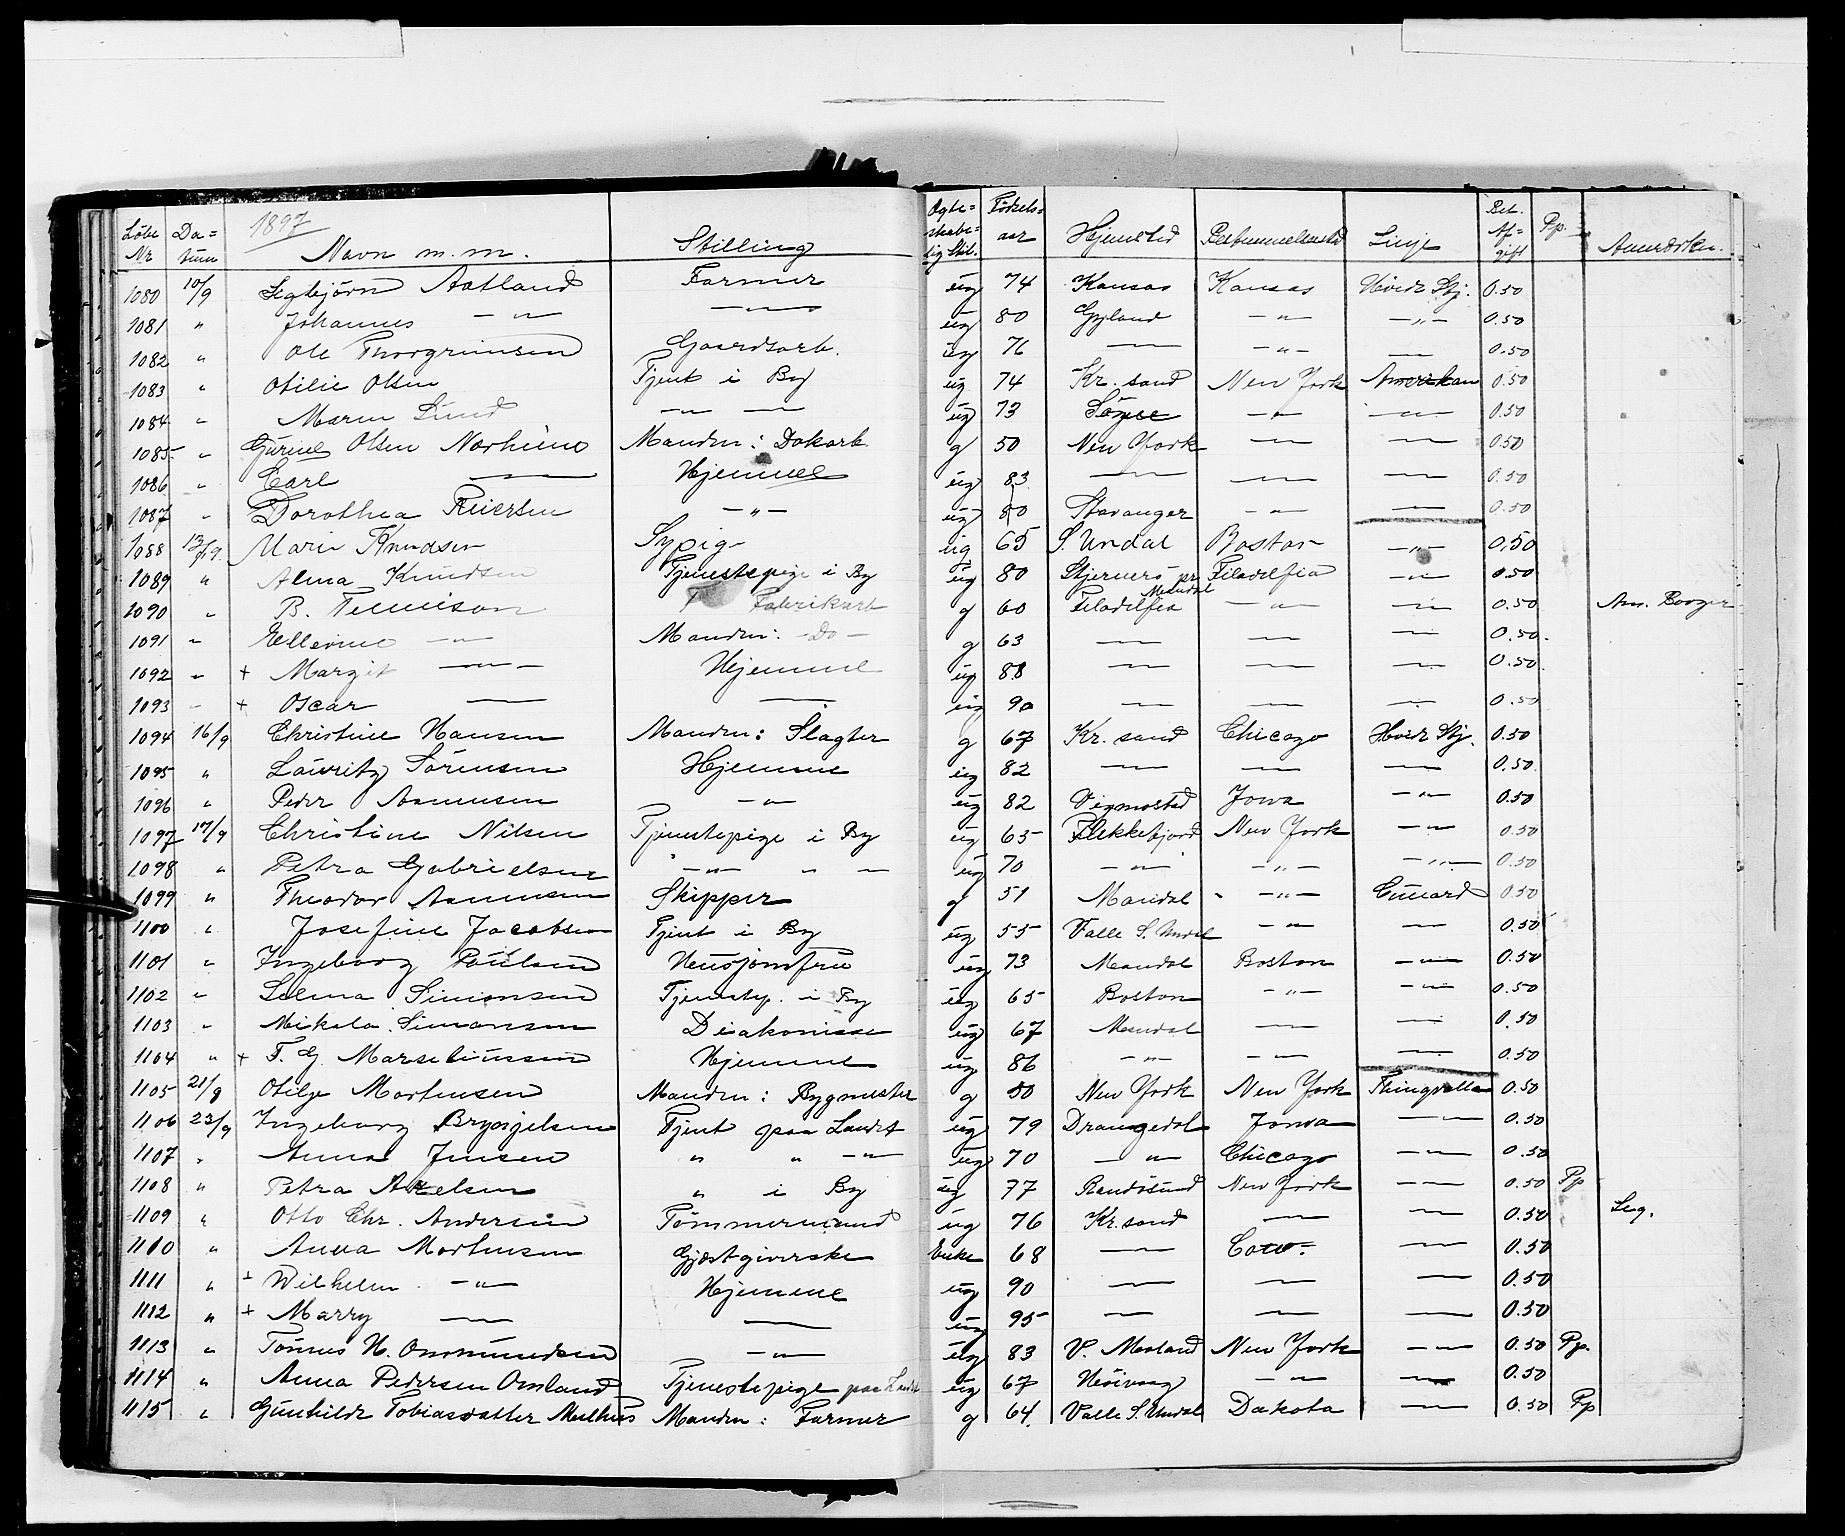 1897
Løbe Nr Da= tum Navn m.m. Stilling Ægte= skabe= lig Stil. Fødsels= aar Hjemsted Bestemmelsessted Linje Bet. Af= gift Pp. Anmærkn.
1080 10/9 Segbjørn Aatland Farmer ug 74 Kansas Kansas Hvide Stj. 0.50
1081 " Johannes —"— —"— ug 80 Gyland —"— —"— 0.50
1082 " Ole Thorgrimsen Gaardsarb. ug 76 — —"— — 0.50
1083 " Otilie Olsen Tjent i By ug 74 Kr. sand New York Amerikan 0.50
1084 " Maren Lund —"— — ug 73 Søgne —"— —"— 0.50
1085 " Gurine Olsen Nærheim Manden: Dokarb g 50 New York — — 0.50
1086 " Carl — Hjemme ug 83 — — — 0.50
1087 " Dorothea Reiersen —"— ug 80 Stavanger —"— — 0.50
1088 13/9 Marie Knudsen Sypige ug 65 S. Undal Boston —"— 0.50
1089 " Alma Knudsen Tjenestepige i By ug 80 Skjernø pr Mandal Filadelfia —"— 0.50
1090 " B. Tennison Fabrikarb g 60 Filadelfia —"— — 0.50 Am. Borger
1091 " Ellevine —"— Manden: —Do— g 63 — — — 0.50
1092 " + Margit —"— Hjemme ug 88 — — — 0.50
1093 " + Oscar — — ug 90 — — — 0.50
1094 16/9 Christine Hansen Manden: Slagter g 67 Kr. sand Chicago Hvide Stj. 0.50
1095 " Lauritz Sørensen Hjemme ug 82 — — — 0.50
1096 " Peder Asmussen —"— ug 82 Vigmostad Jowa —"— 0.50
1097 17/9 Christine Nilsen Tjenestepige i By ug 65 Flekkefjord New York —"— 0.50
1098 " Petra Gabrielsen " —"— " — ug 70 —"— —"— —"— 0.50
1099 " Theodor Asmussen Skipper g 51 Mandal " —"— Cunard 0.50
1100 " Josefine Jacobsen Tjent i By ug 55 Valle S. Undal —"— — 0.50
1101 " Ingeborg Poulsen Husjomfru ug 73 Mandal Boston —"— 0.50
1102 " Selma Simonsen Tjenestep. i By ug 65 Boston —"— —"— 0.50
1103 " Mikala Simonsen Diakonisse ug 67 Mandal — — 0.50
1104 " + T. G. Marseliussen Hjemme ug 86 —"— —"— — 0.50
1105 21/9 Otilje Mortensen Manden: Bygmester g 50 New York New York Thingvalla 0.50
1106 23/9 Ingeborg Brynjelsen Tjent paa Landet ug 79 Drangedal Jowa —"— 0.50
1107 " Anna Jensen " " —"— ug 70 —"— Chicago —"— 0.50
1108 " Petra Axelsen " i By ug 77 Randøsund New York —"— 0.50 Pp
1109 " Otto Chr. Andersen Tømmermand ug 76 Kr. sand — —"— 0.50 Leg.
1110 " Anna Mortensen Gjæstgiverske Enke 68 — — 0.50
1111 " + Wilhelm —"— Hjemme ug 90 — — — 0.50
1112 " + Marry — — ug 95 — — — 0.50
1113 " Tønnes H. Ommundsen —"— ug 83 V. Moland New York —"— 0.50 Pp.
1114 " Anna Pedersen Omland Tjenestepige paa Landet ug 67 Høivaag —"— —"— 0.50
1115 " Gunhilde Tobiasdatter Melhus Manden: Farmer g 64 Valle S. Undal Dakota — 0.50 Pp